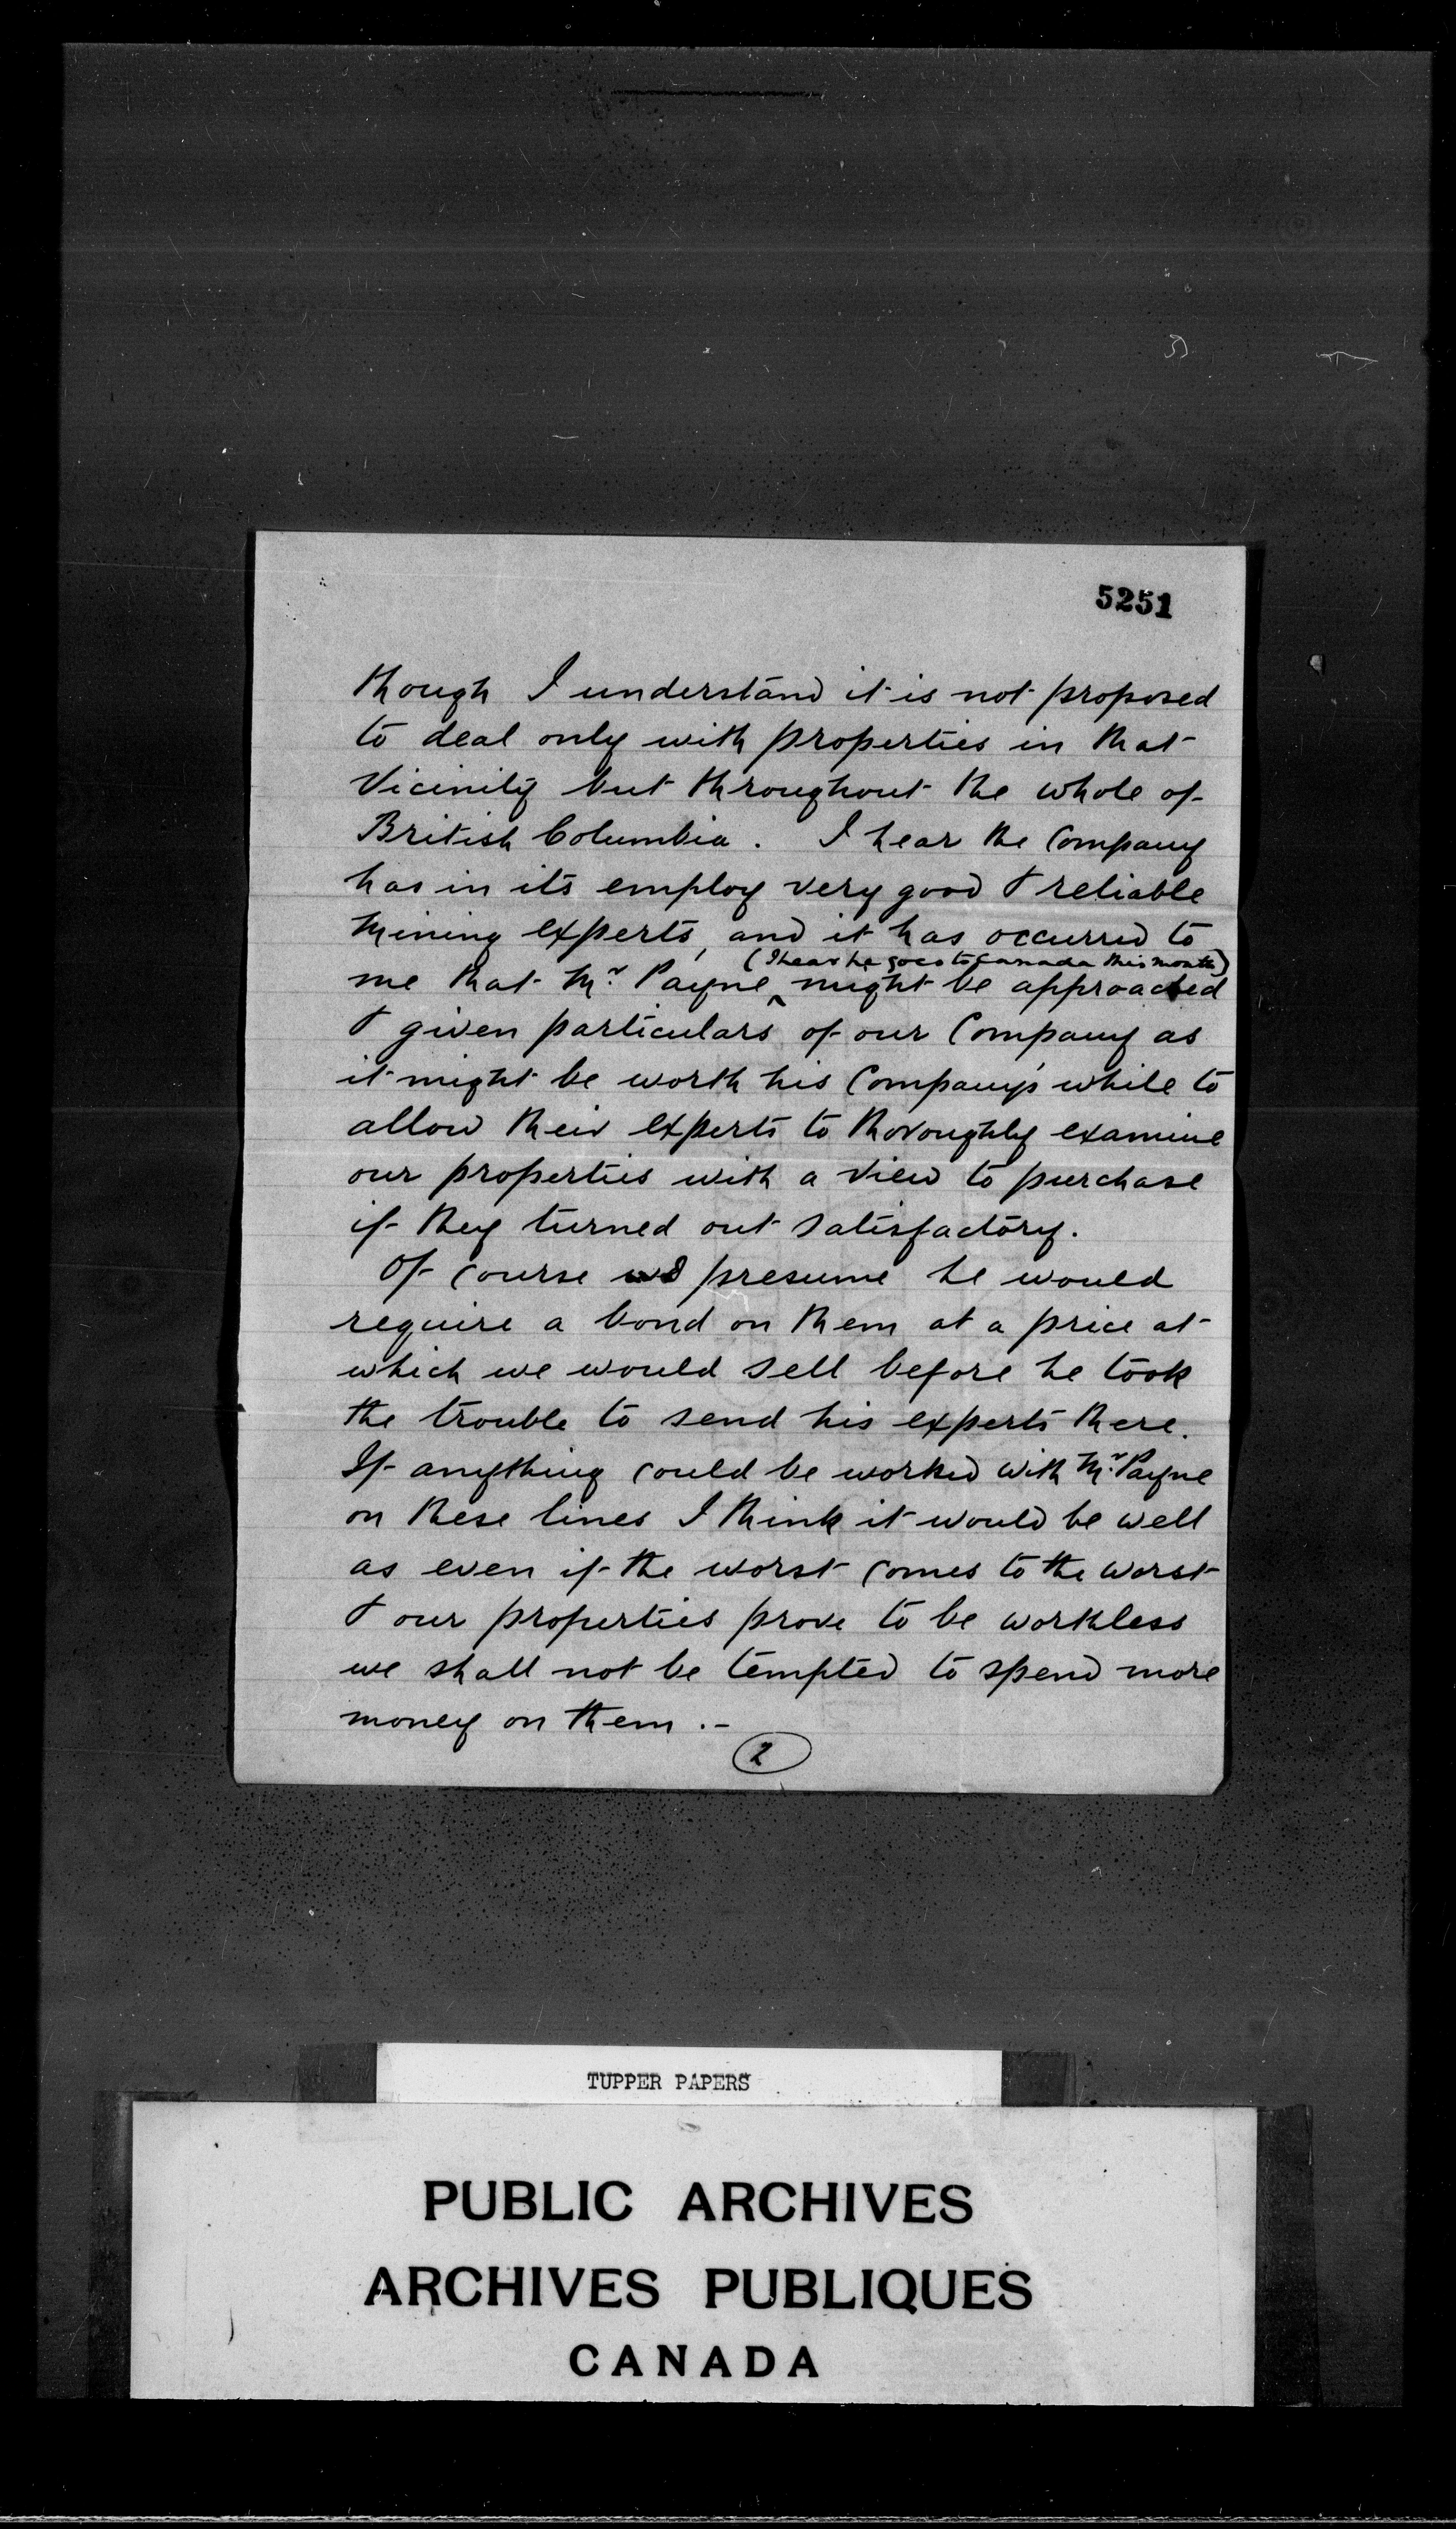 5251
though I understand it is not proposed
to deal only with properties in that
Vicinity but throughout the whole of
British Columbia. I hear the Company
has in its employ very good & reliable
Mining experts, and it has occurred to
(I hear he goes to Canada this month)
me that Mr. Payne ^ might be approached
& given particulars of our Company as
it might be worth his Company's while to
allow their experts to thoroughly examine
our properties with a view to purchase
if they turned out satisfactory.
Of course I presume he would
require a bond on them at a price at
which we would sell before he took
the trouble to send his experts there.
If anything could be worked with Mr. Payne
on these lines I think it would be well
as even if the worst comes to the worst
& our properties prove to be worthless
we shall not be tempted to spend more
money on them.-
2
TUPPER PAPERS
PUBLIC ARCHIVES
ARCHIVES PUBLIQUES
CANADA